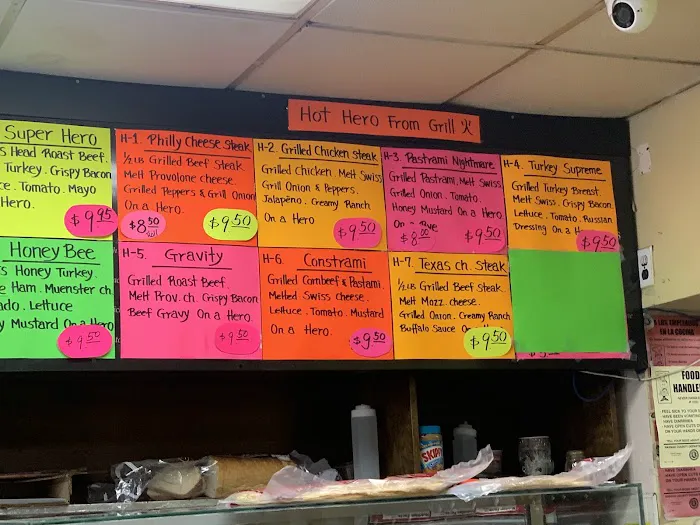 Hot Hero From Grill 火
Super Hero
s Head Roast Beef.
Turkey. Crispy Bacon
ce. Tomato. Mayo
Hero.
$9.95
H-1. Philly Cheese Steak
1/2 LB Grilled Beef Steak
Melt Provolone cheese.
Grilled Peppers & Grill Onion
On a Hero.
$8.50
$9.50
H-2. Grilled Chicken steak
Grilled Chicken. Melt Swiss
Grill Onion & Peppers.
Jalapeño. Creamy Ranch
On a Hero
$9.50
H-3. Pastrami Nightmare
Grilled Pastrami. Melt Swiss
Grilled Onion. Tomato.
Honey Mustard On a Hero
$8.00
$9.50
H-4. Turkey Supreme
Grilled Turkey Breast.
Melt Swiss. Crispy Bacon
Lettuce. Tomato. Russian
Dressing On a H
$9.50
Honey Bee
s Honey Turkey.
Ham. Muenster ch.
ado. Lettuce
y Mustard On a Hero
$9.50
H-5. Gravity
Grilled Roast Beef.
Melt Prov. ch. Crispy Bacon
Beef Gravy On a Hero.
$9.50
H-6. Constrami
Grilled Cornbeef & Pastami.
Melted Swiss cheese.
Lettuce. Tomato. Mustard
On a Hero.
$9.50
H-7. Texas ch. Steak
1/2 LB Grilled Beef Steak.
Melt Mozz cheese.
Grilled Onion. Creamy Ranch
Buffalo Sauce On
$9.50
SKIPPY
EN LA COCINA
FOOD
HANDLE